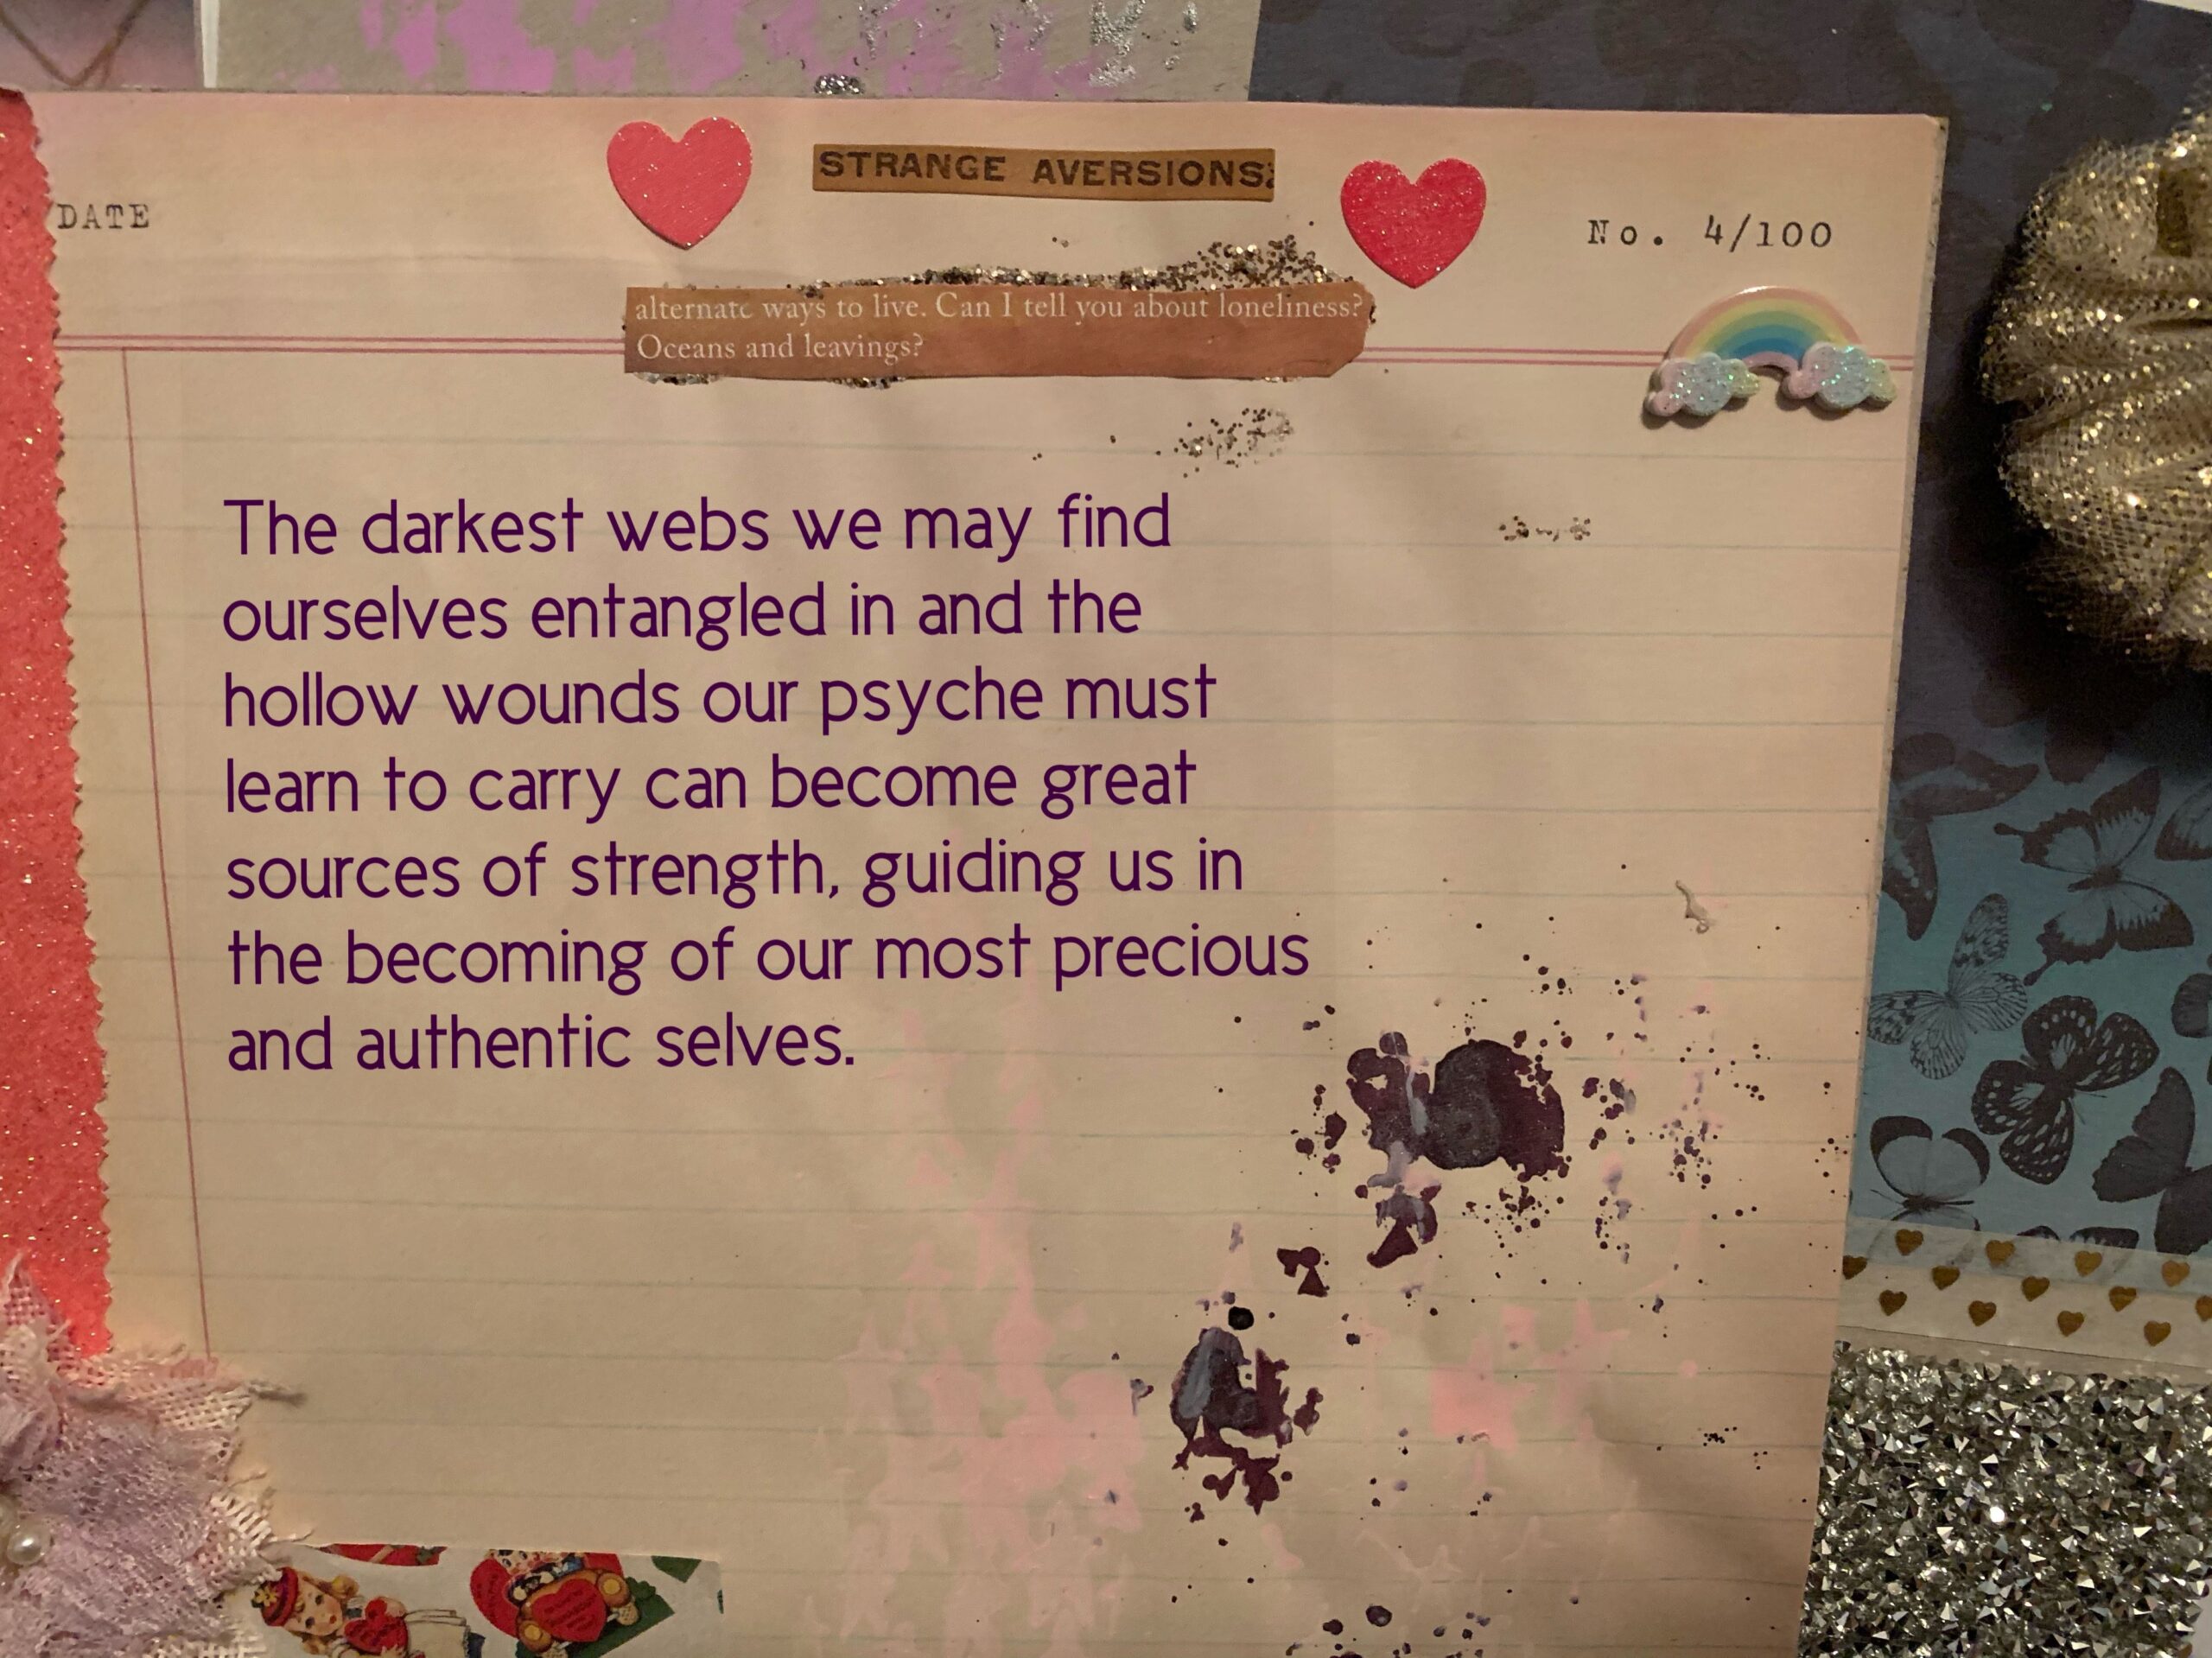 STRANGE AVERSIONS:
DATE
No. 4/100
alternate ways to live. Can I tell you about loneliness?
Oceans and leavings?
The darkest webs we may find
ourselves entangled in and the
hollow wounds our psyche must
learn to carry can become great
sources of strength, guiding us in
the becoming of our most precious
and authentic selves.